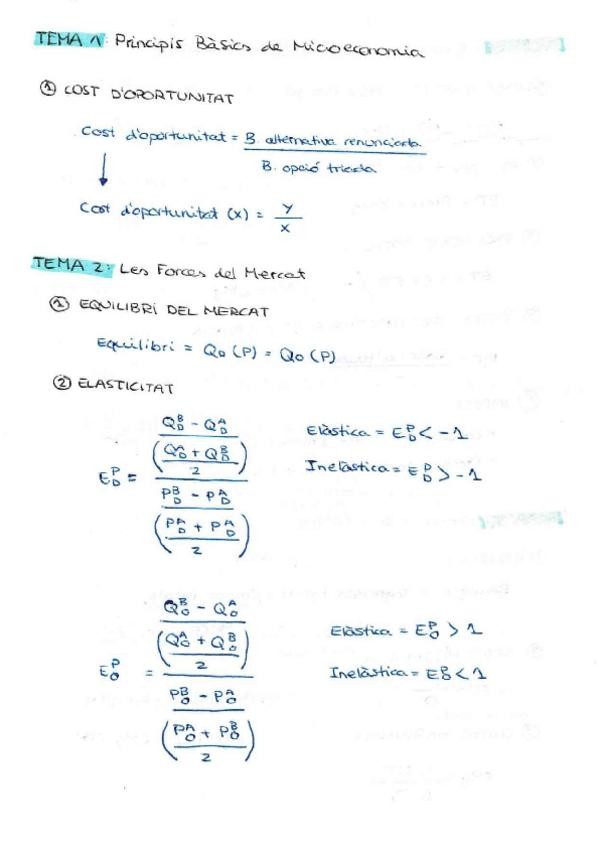 TEMA 1: Principis Bàsics de Microeconomia
① COST D'OPORTUNITAT
Cost d'oportunitat = B. alternativa renunciada / B. opció triada
↓
Cost d'oportunitat (x) = y / x
TEMA 2: Les Forces del Mercat
① EQUILIBRI DEL MERCAT
Equilibri = Q_D (P) = Q_O (P)
② ELASTICITAT
E_D^P = ((Q_D^B - Q_D^A) / ((Q_D^A + Q_D^B) / 2)) / ((P_D^B - P_D^A) / ((P_D^A + P_D^A) / 2))
Elàstica = E_D^P < -1
Inelàstica = E_D^P > -1
E_O^P = ((Q_O^B - Q_O^A) / ((Q_O^A + Q_O^B) / 2)) / ((P_O^B - P_O^A) / ((P_O^A + P_O^B) / 2))
Elàstica = E_O^P > 1
Inelàstica = E_O^P < 1